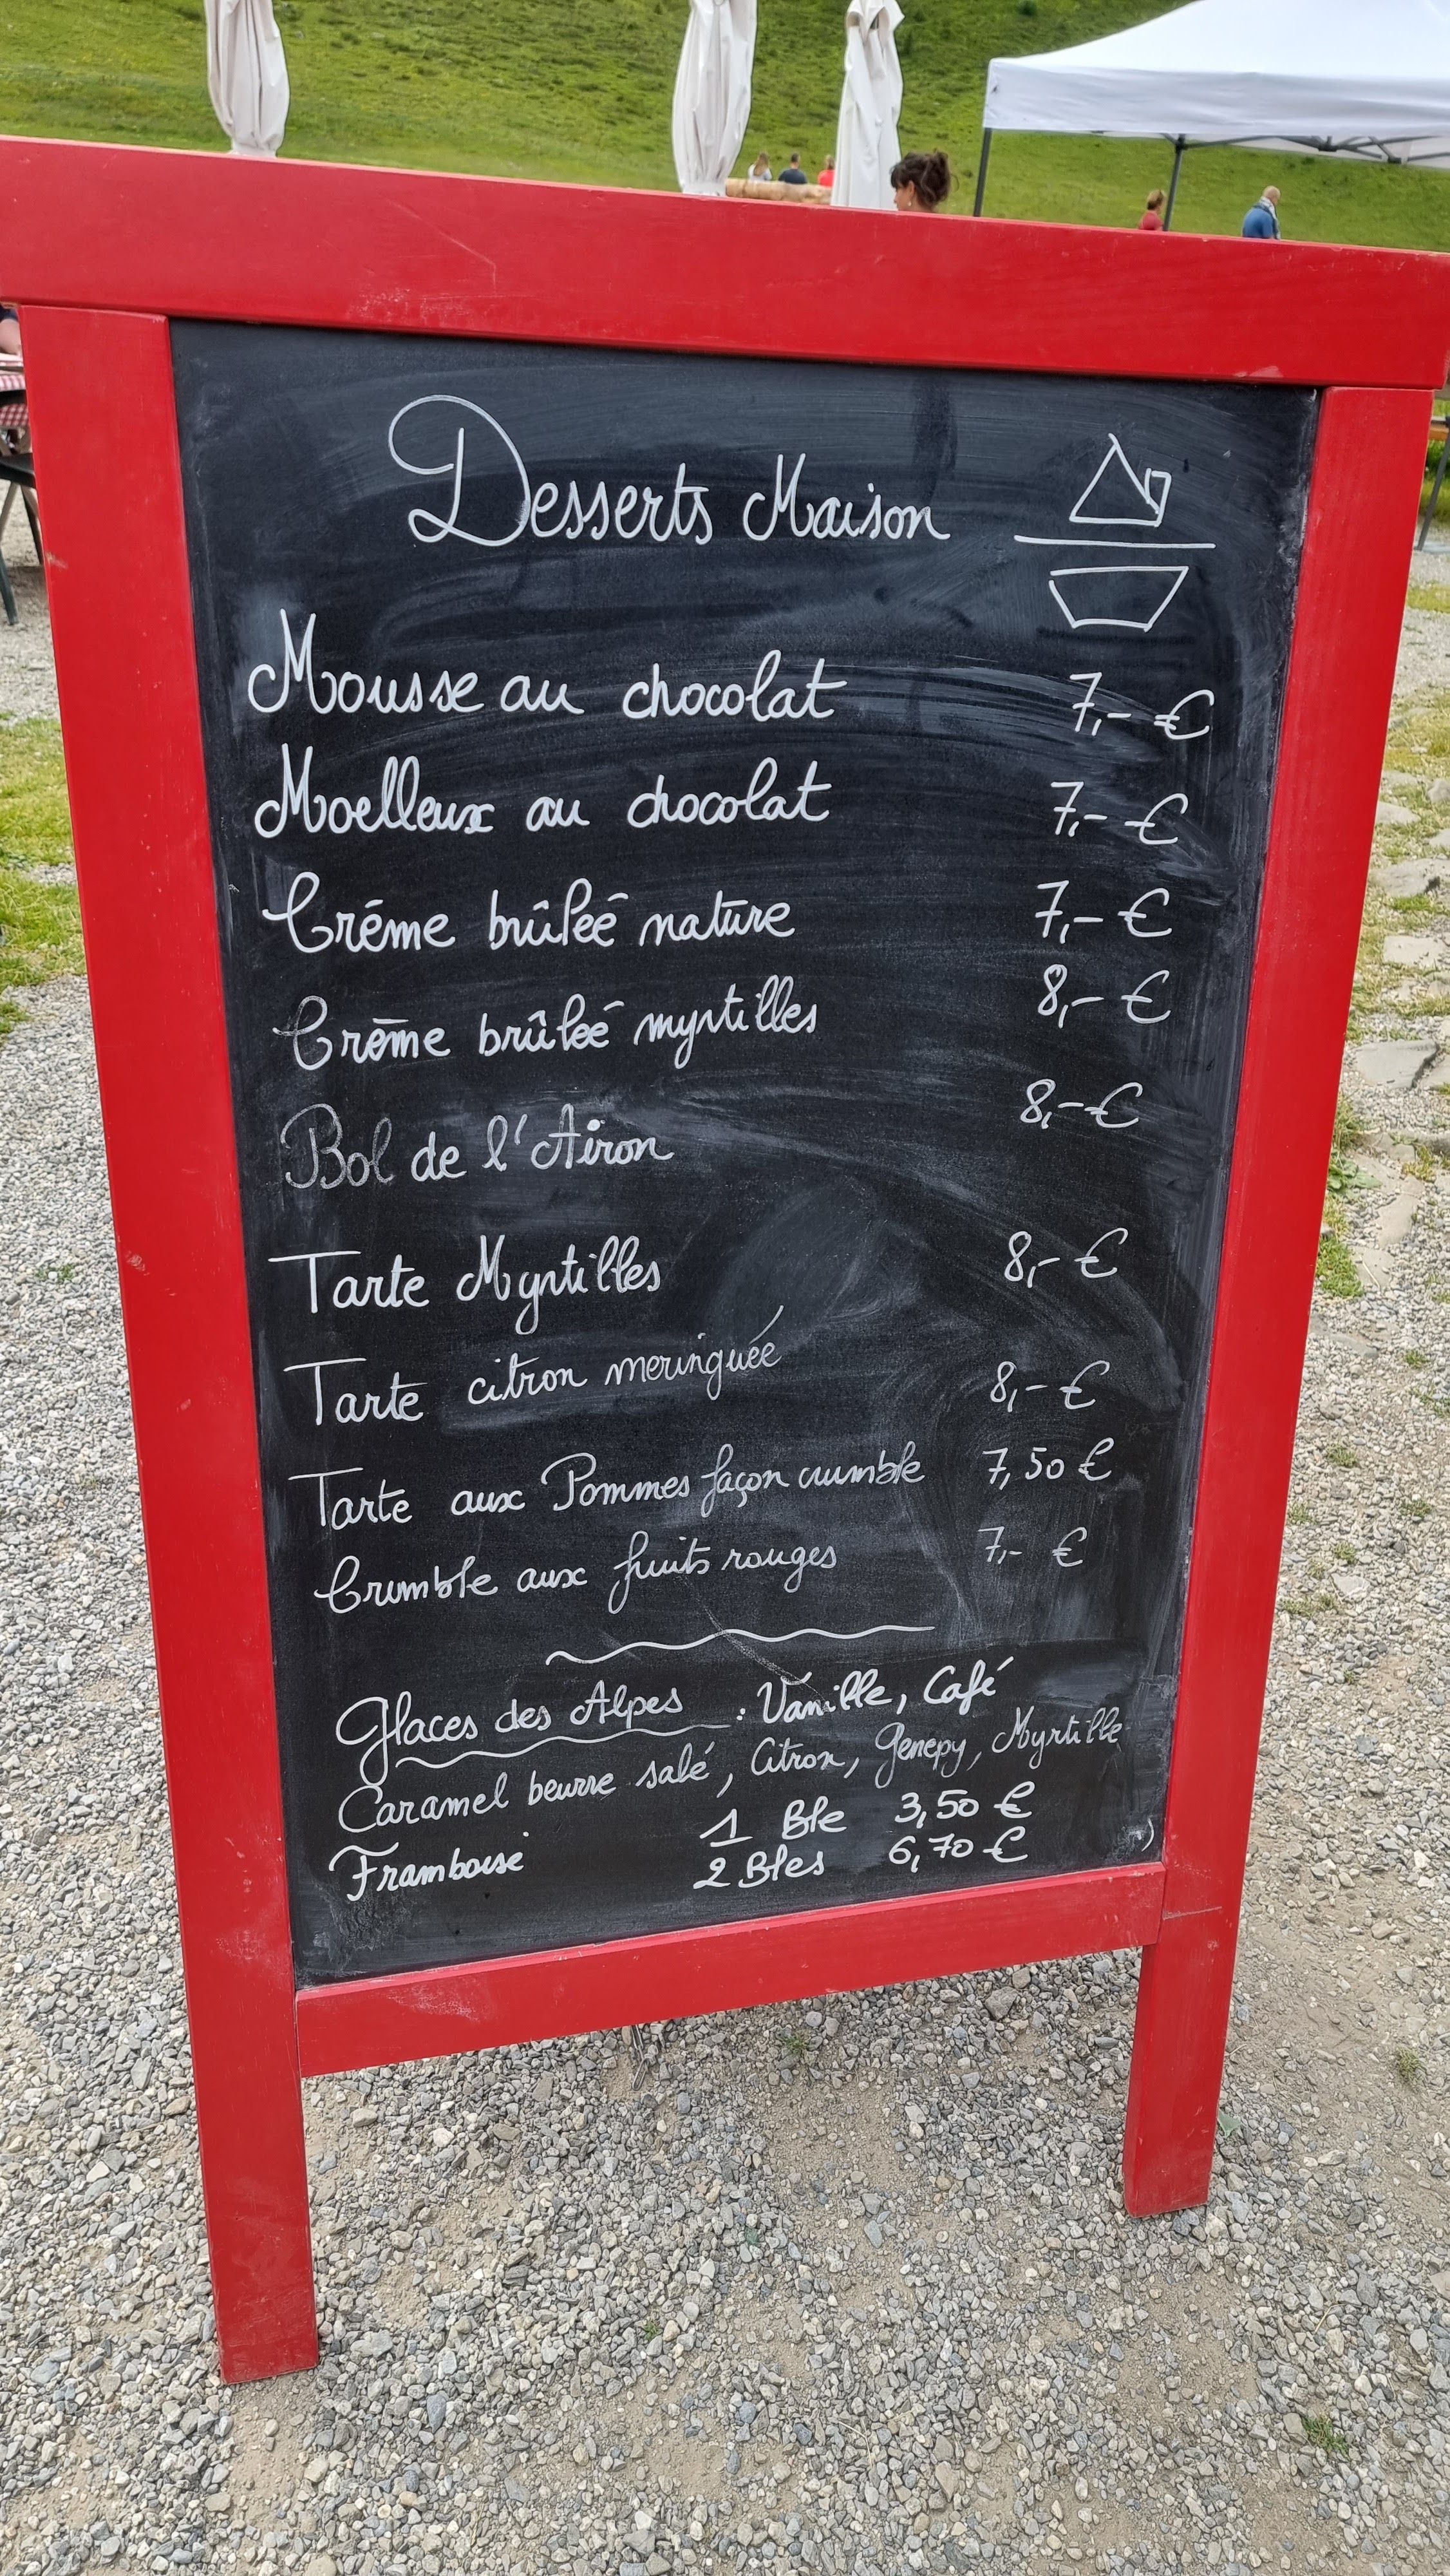 Desserts Maison
Mousse au chocolat 7,- €
Moelleux au chocolat 7,- €
Créme brûleé nature 7,- €
Crème brûleé myrtilles 8,- €
Bol de l'Airon 8,- €
Tarte Myrtilles 8,- €
Tarte citron meringuée 8,- €
Tarte aux Pommes façon crumble 7,50 €
Crumble aux fruits rouges 7,- €
Glaces des Alpes : Vanille, Café
Caramel beurre salé, Citron, Genépy, Myrtille
Framboise 1 Ble 3,50 €
2 Bles 6,70 €